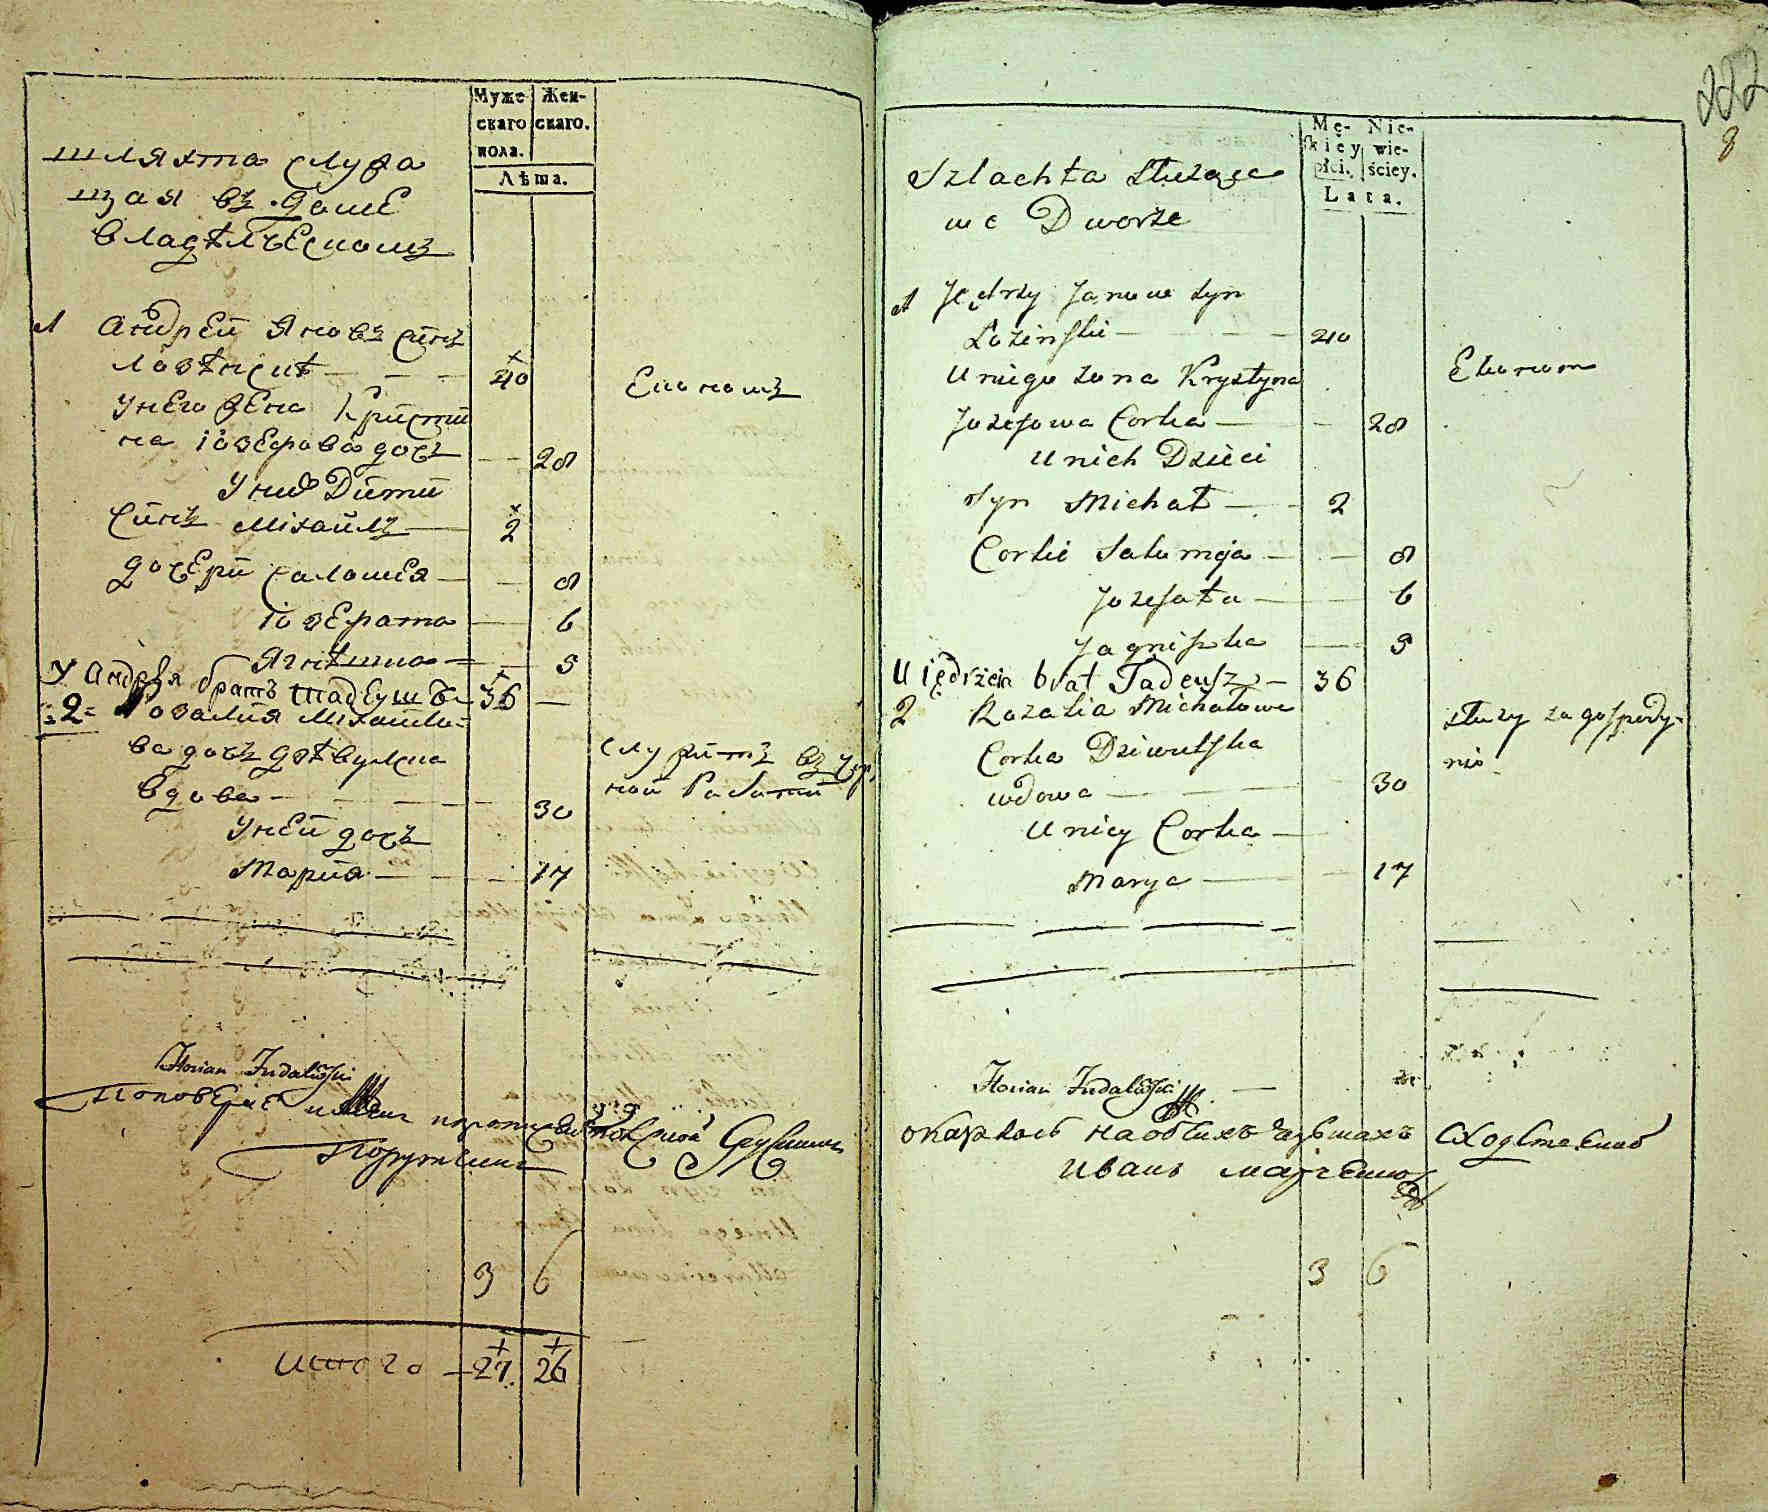 Муже-
скаго
пола.
Жен-
скаго.
Лѣта.
шляхта служа
щая въ доме
владѣлческомъ
1 андрей Яновъ синъ
лозѣнскѣ 40
Економъ
у него жена Кристи
на іозефова дочъ 28
у них Дити
Синъ Міхайлъ 2
дочери Саломея 8
іозефата 6
Ягнѣшка 5
У Андрѣя братъ Тадеушъ 36
2 Розалия Міхайло=
ва дочъ дзѣвулска
вдова 30
служитъ въ
ной Работи
у ней дочъ
Мария 17
Florian
3 6
итого 27 26
222
8
Mę-
skiey
płci.
Nie-
wie-
ściey.
Lata.
Szlachta służące
we Dworze
1 Jędrzy Janow syn
Łozinski 40
Ekonom
u niego zona Krystyna
Jozefowa Corka 28
u nich Dzieci
Syn Michał 2
Corki Salomeja 8
Jozefata 6
Jagniszka 5
U iędrzeia brat Tadeusz 36
2 Rozalia Michałowa
Corka Dziwulska
wdowa 30
służy za gospody-
nie
u niey Corka
Marya 17
Florian
оказалось на обеихъ сходственно
Иванъ
3 6